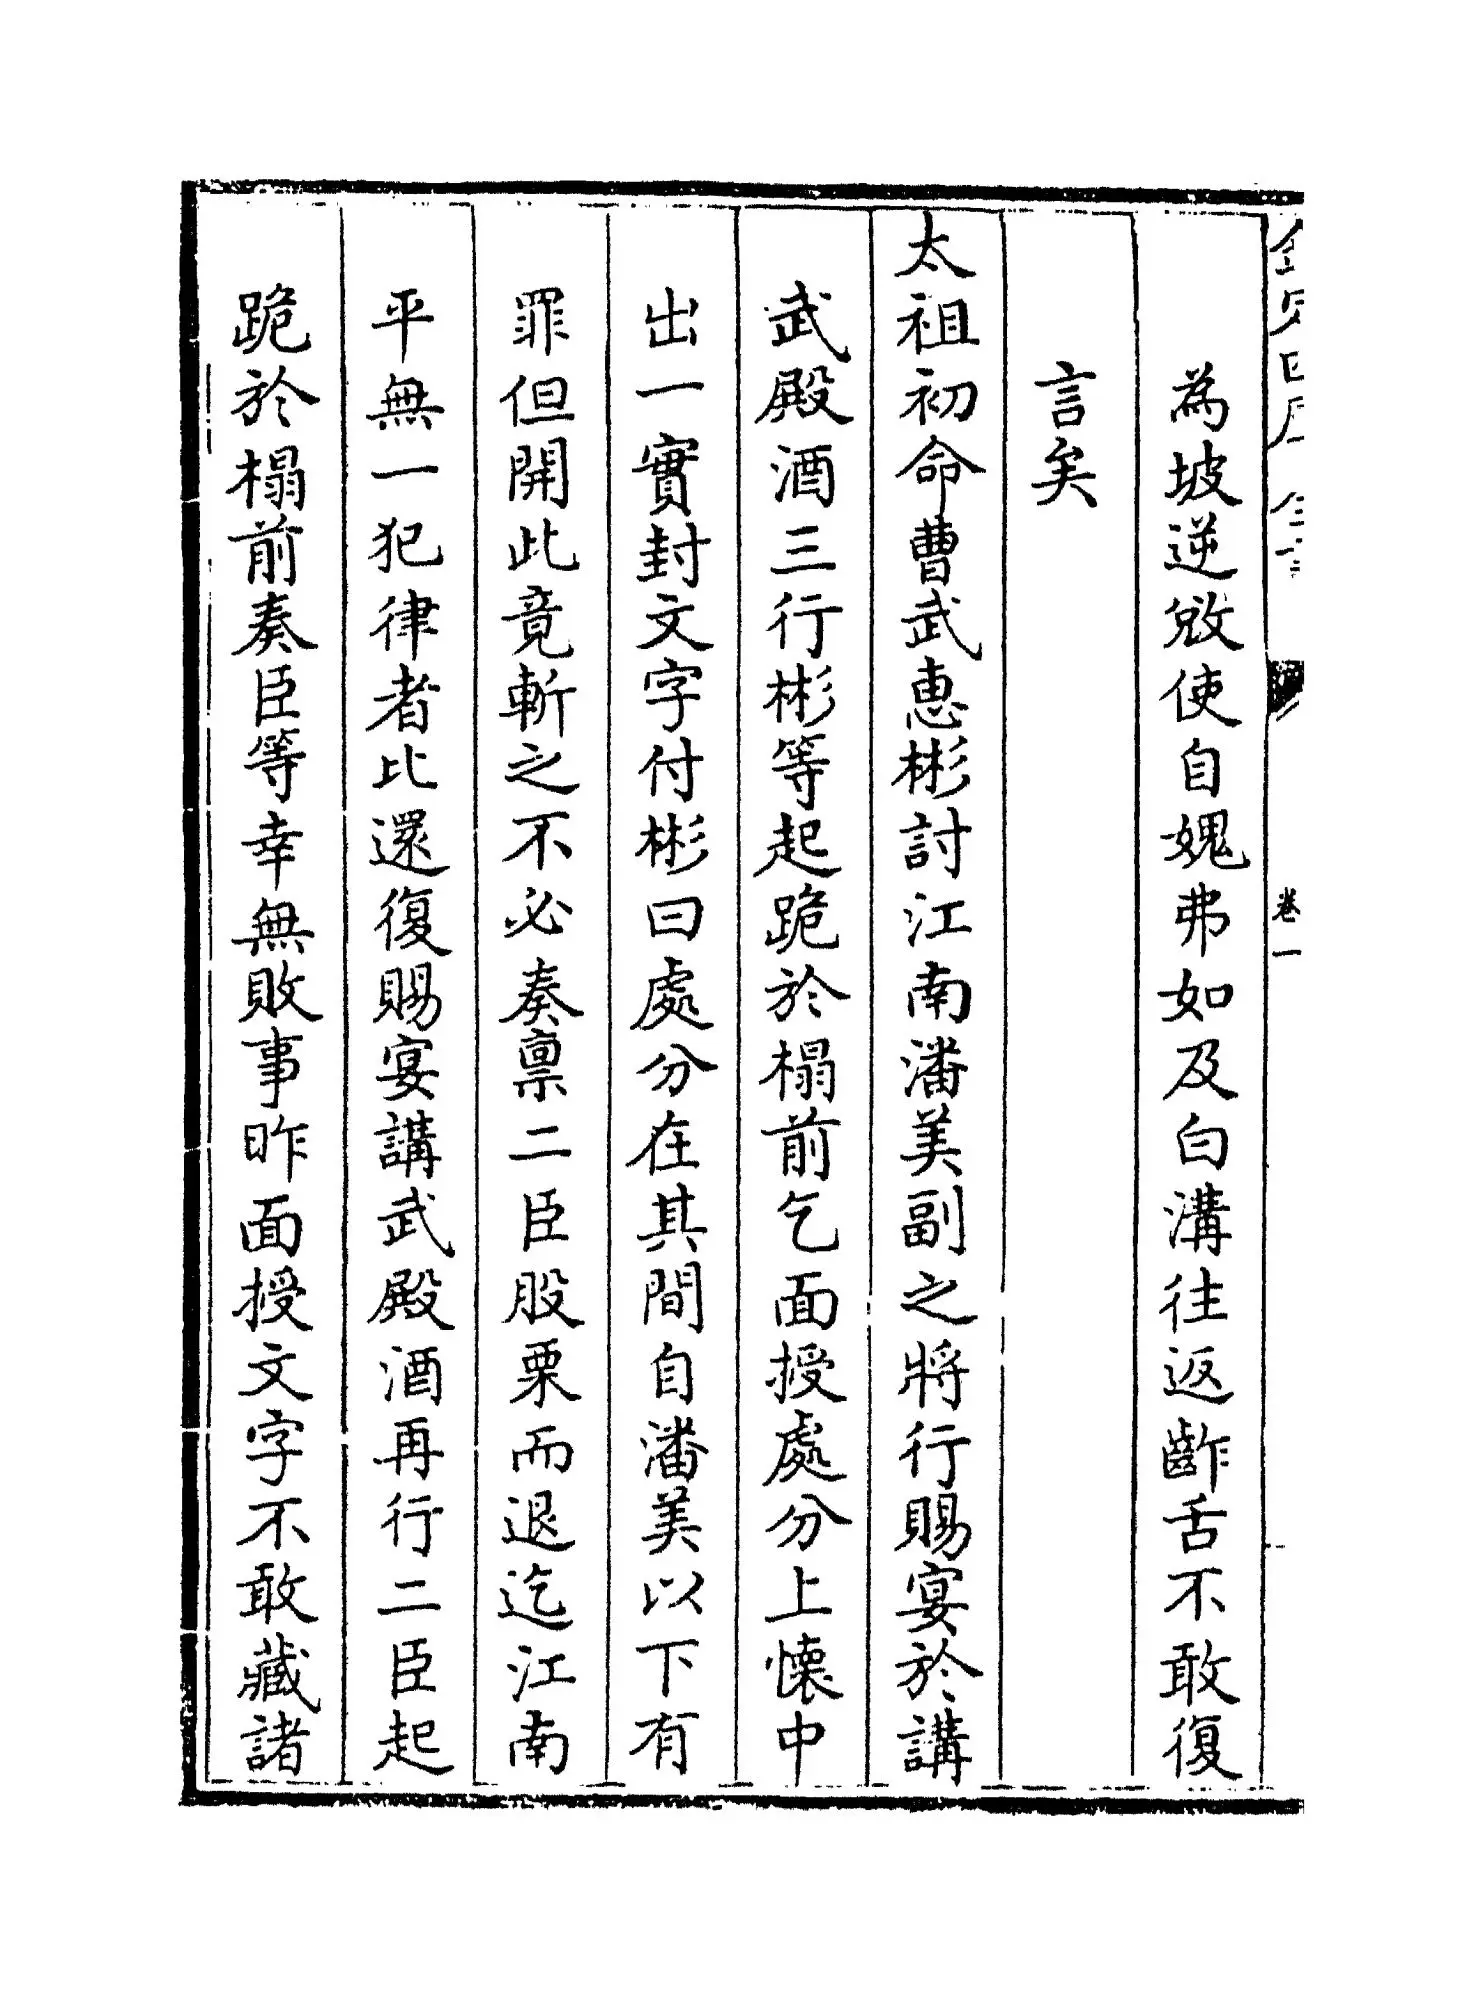 欽定四庫全書
卷一
為坡逆敚使自媿弗如及白溝往返齚舌不敢復
言矣
太祖初命曹武惠彬討江南潘美副之將行賜宴於講
武殿酒三行彬等起跪於榻前乞面授處分上懷中
出一實封文字付彬曰處分在其間自潘美以下有
罪但開此竟斬之不必奏禀二臣股栗而退迄江南
平無一犯律者比還復賜宴講武殿酒再行二臣起
跪於榻前奏臣等幸無敗事昨面授文字不敢藏諸